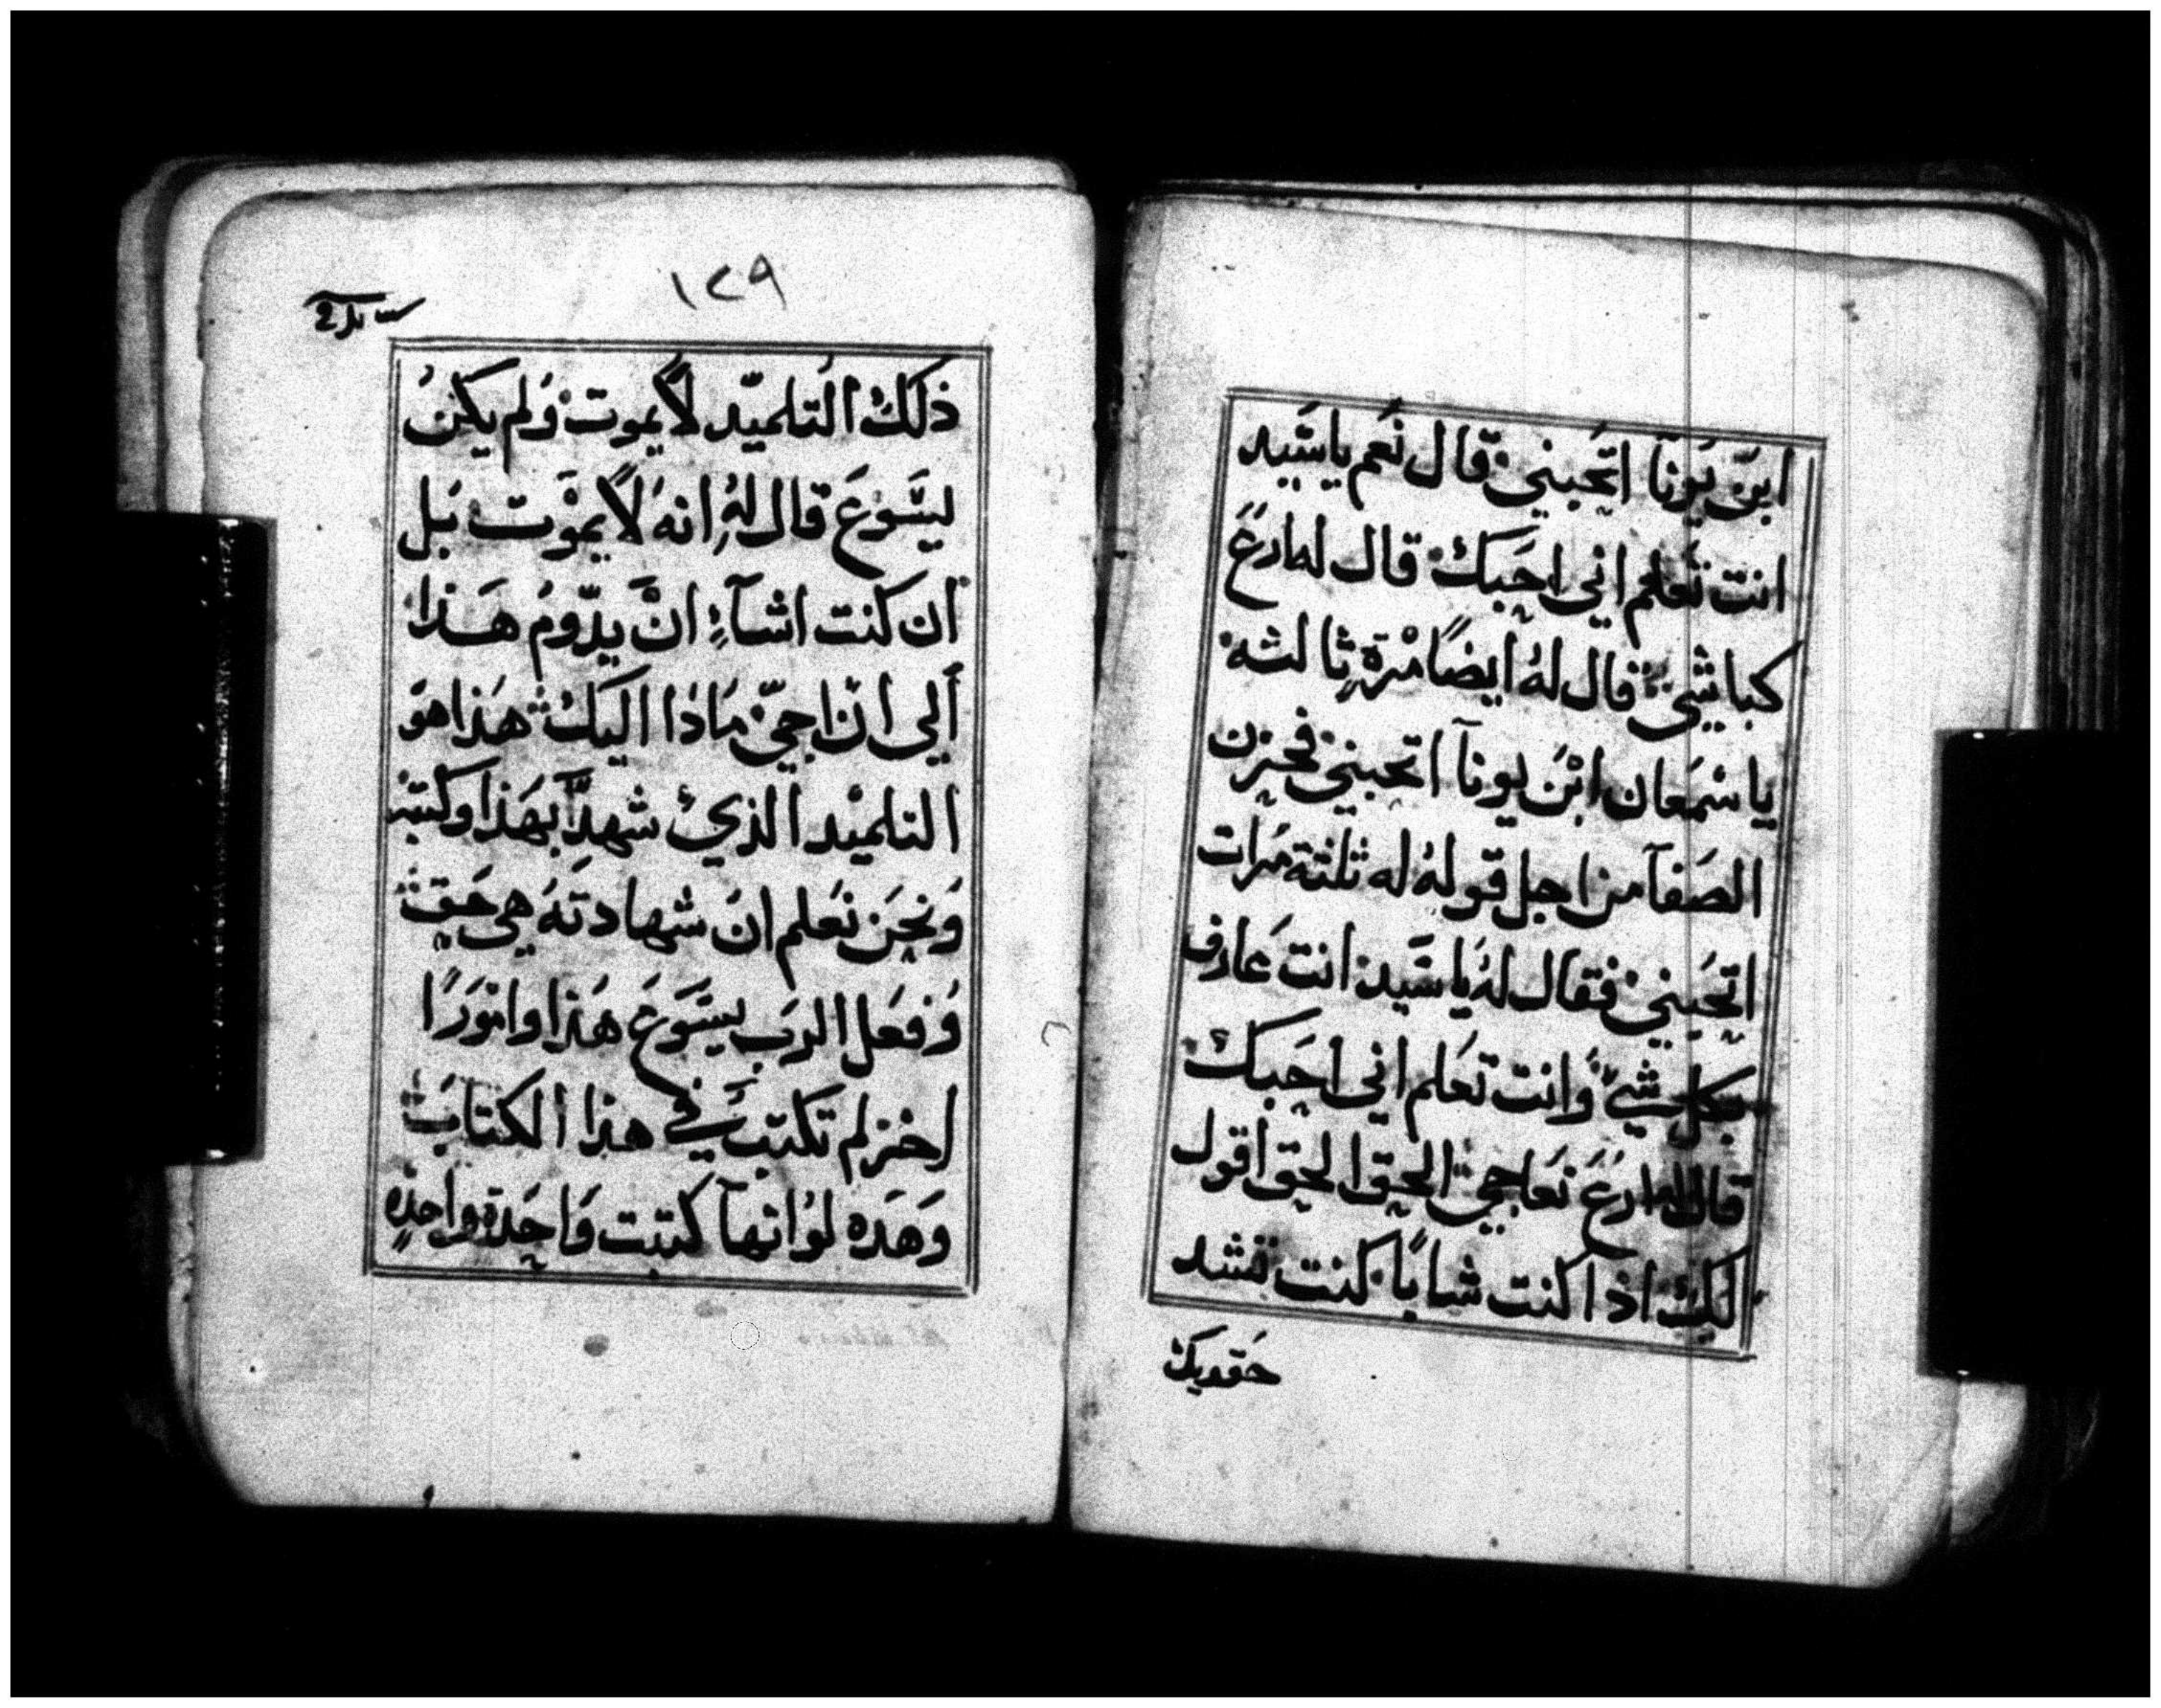 ابن يونا اتحبني قال نعم ياسيد
انت تعلم اني احبك قال له ارع
كباشي قال له ايضا مرة ثالثه
ياسمعان ابن يونآ اتحبني فحزن
الصفآ من اجل قوله له ثلثة مرات
اتحبني فقال له ياسيد انت عارف
بكل شي وانت تعلم اني احبك
قال له ارع نعاجي الحق الحق اقول
لك اذا كنت شابا كنت تشد
حقويك
١٢٩
ذلك التلميد لا يموت ولم يكن
يسوع قال له انه لا يموت بل
ان كنت اشآء ان يدوم هذا
الي ان اجي ماذا اليك هذا هو
التلميد الذي شهد بهذا وكتبه
ونحن نعلم ان شهادته هي حق
وفعل الرب يسوع هذا وامورًا
اخر لم تكتب في هذا الكتاب
وهده لو انهآ كتبت واحدة واحده